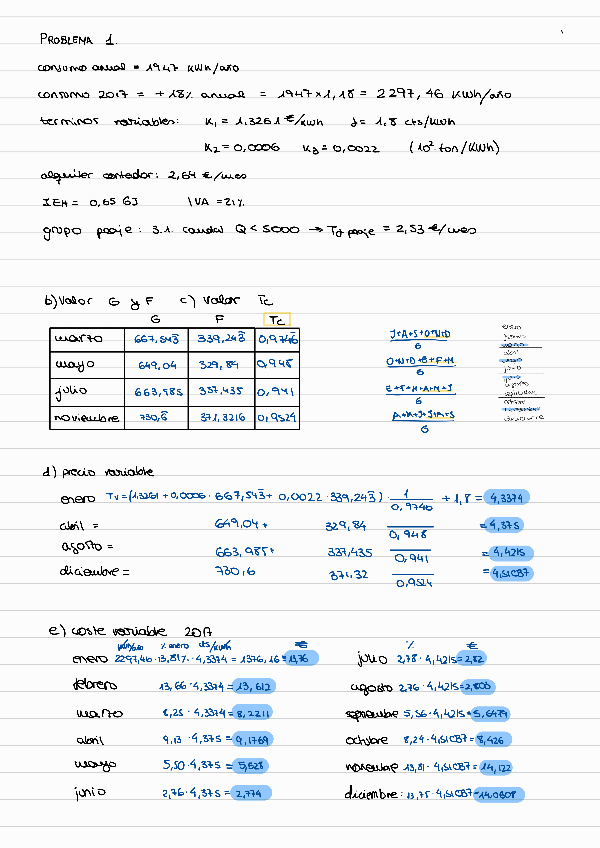 PROBLEMA 1.
consumo anual = 1947 kWh/año
consumo 2017 = +18% anual = 1947×1,18 = 2297,46 kWh/año
terminos variables: K1 = 1,3261 €/kWh J = 1,8 cts/kWh
K2 = 0,0006 K3 = 0,0022 (10² ton/kWh)
alquiler contador: 2,64 €/mes
IEH = 0,65 GJ IVA = 21%
grupo peaje: 3.1. caudal Q < 5000 → Tf peaje = 2,53 €/mes
b) valor G y F c) valor Tc
G F Tc
marzo 667,543 339,243 0,9746
mayo 649,04 329,84 0,948
julio 663,985 337,435 0,941
noviembre 730,6 371,3216 0,9524
J+A+S+O+N+D
6
O+N+D+E+F+M
6
E+F+M+A+M+J
6
A+M+J+J+A+S
6
enero
abril
julio
agosto
d) precio variable
enero Tv = (1,3261 + 0,0006 · 667,543 + 0,0022 · 339,243) · 1 / 0,9746 + 1,8 = 4,3374
abril = 649,04 + 329,84 0,948 = 4,375
agosto = 663,985 + 337,435 0,941 = 4,4215
diciembre = 730,6 371,32 0,9524 = 4,51087
e) coste variable 2017
% enero cts/kWh € % €
enero 2297,46 · 13,81% · 4,3374 = 1376,16 = 13,76 julio 2,78 · 4,4215 = 2,82
febrero 13,66 · 4,3374 = 13,612 agosto 2,76 · 4,4215 = 2,803
marzo 8,25 · 4,3374 = 8,2211 septiembre 5,56 · 4,4215 = 5,6479
abril 9,13 · 4,375 = 9,1769 octubre 8,24 · 4,51087 = 8,426
mayo 5,50 · 4,375 = 5,528 noviembre 13,81 · 4,51087 = 14,122
junio 2,76 · 4,375 = 2,774 diciembre: 13,75 · 4,51087 = 14,0608